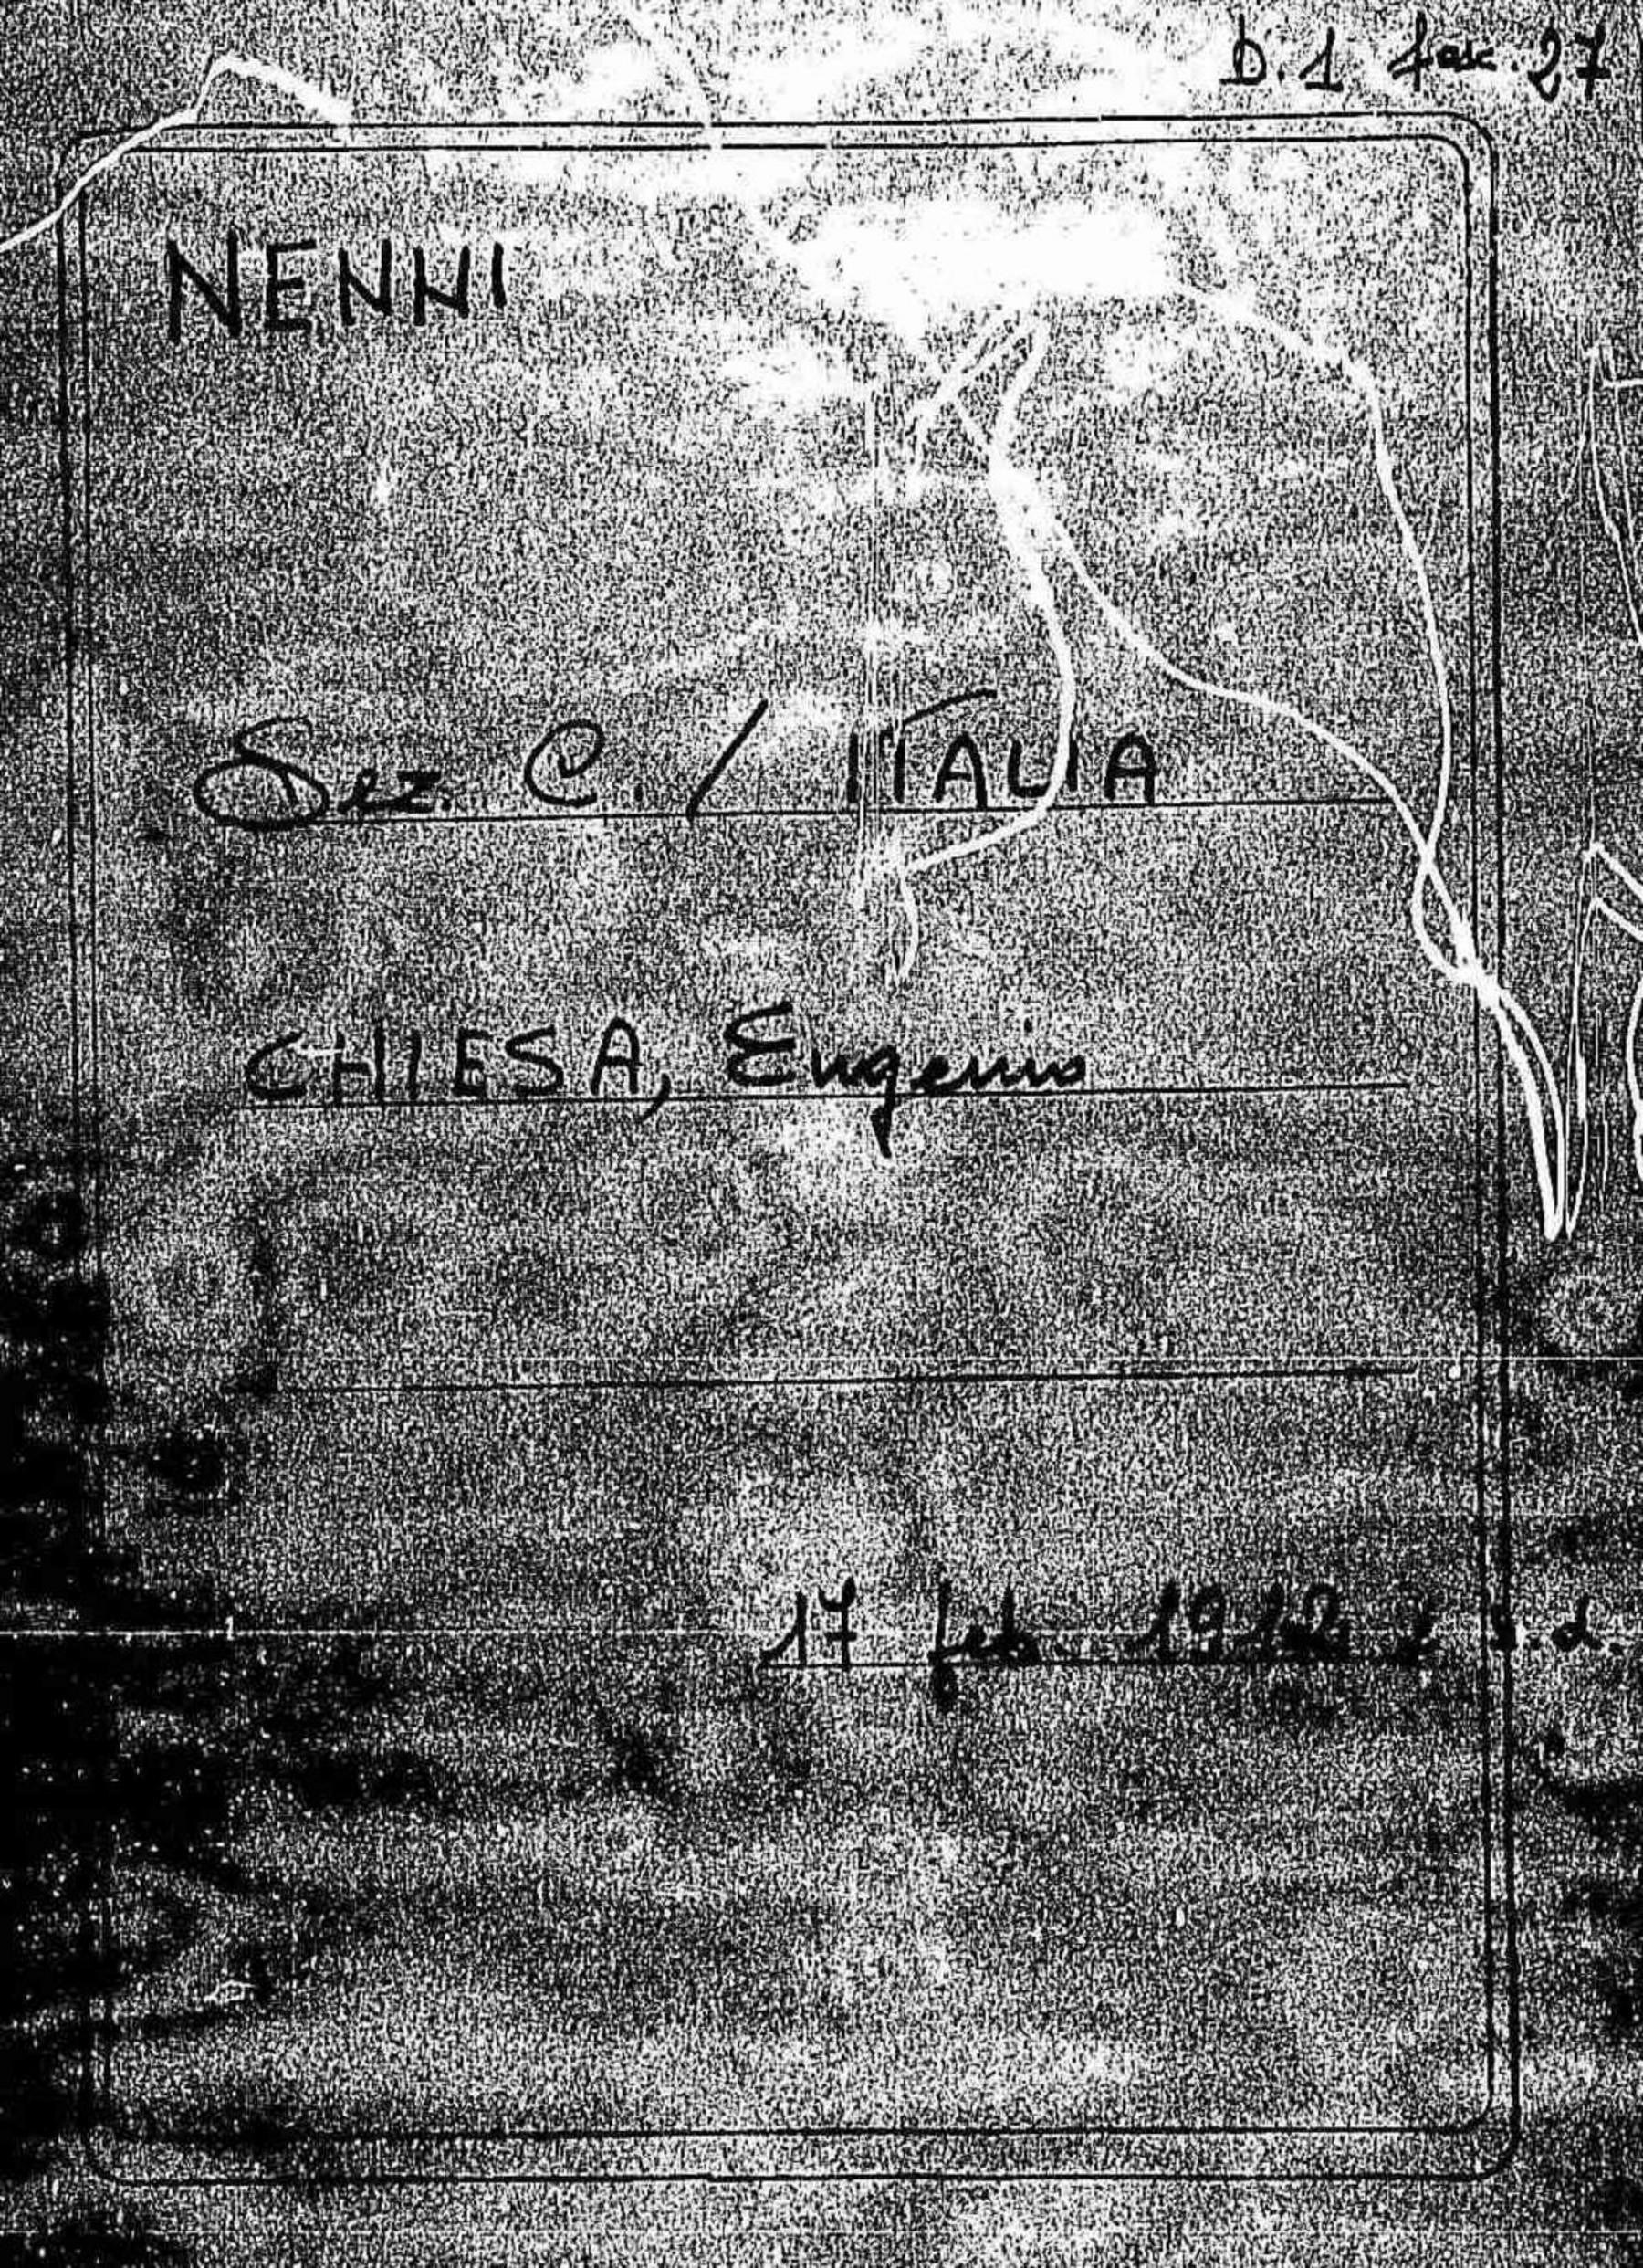 b. 1 fasc. 27
NENNI
Sez. C. / ITALIA
CHIESA, Eugenio
17 feb. 1912 e s.d.